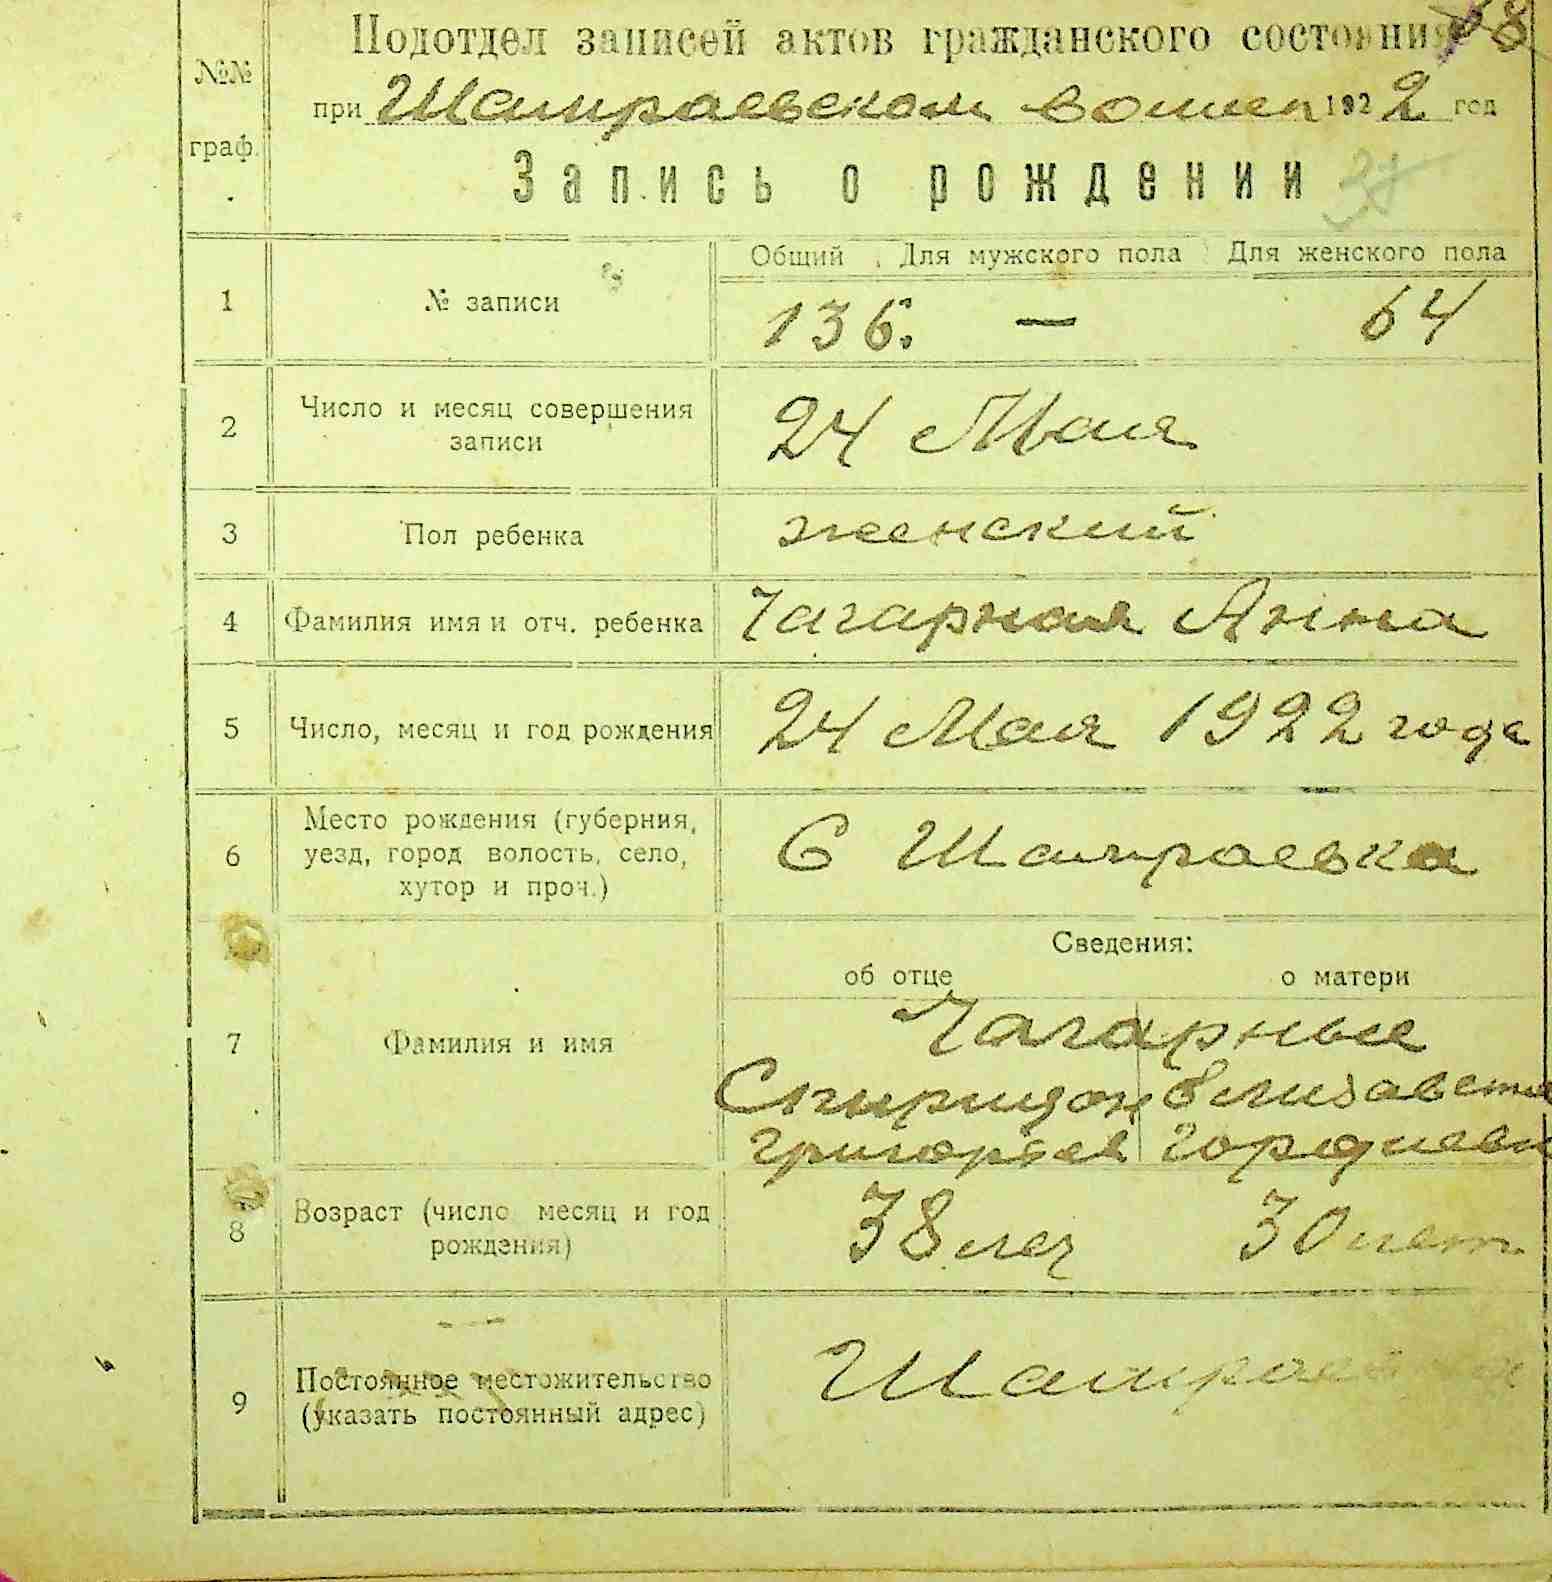 Подотдел записей актов гражданского состояния
№№ граф.
при Шамраевском волисп 1922 год
Запись о рождении
Общий Для мужского пола Для женского пола
1 № записи 136. — 64
2 Число и месяц совершения записи 24 Мая
3 Пол ребенка женский
4 Фамилия имя и отч. ребенка Чагарная Анна
5 Число, месяц и год рождения 24 Мая 1922 года
6 Место рождения (губерния, уезд, город волость, село, хутор и проч.) С Шамраевка
Сведения:
об отце о матери
7 Фамилия и имя Чагарные
Спиридон Елизавета
Григорьев Гордиевн
8 Возраст (число месяц и год рождения) 38 лет 30 лет
9 Постоянное местожительство (указать постоянный адрес) Шамраевка